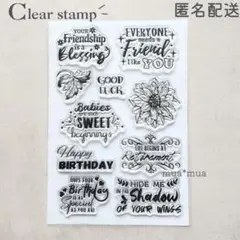 Clear stamp
匿名配送
YOUR
Friendship
is a
Blessing
EVERYONE
needs a
Friend
Like
YOU
GOOD
LUCK
Babies
are such
SWEET
beginnings
Happy
BIRTHDAY
LIFE BEGINS AT
Retirement
mua*mua
HOPE YOUR
Birthday
IS AS
Special
AS YOU ARE
HIDE ME
IN THE
Shadow
OF YOUR WINGS